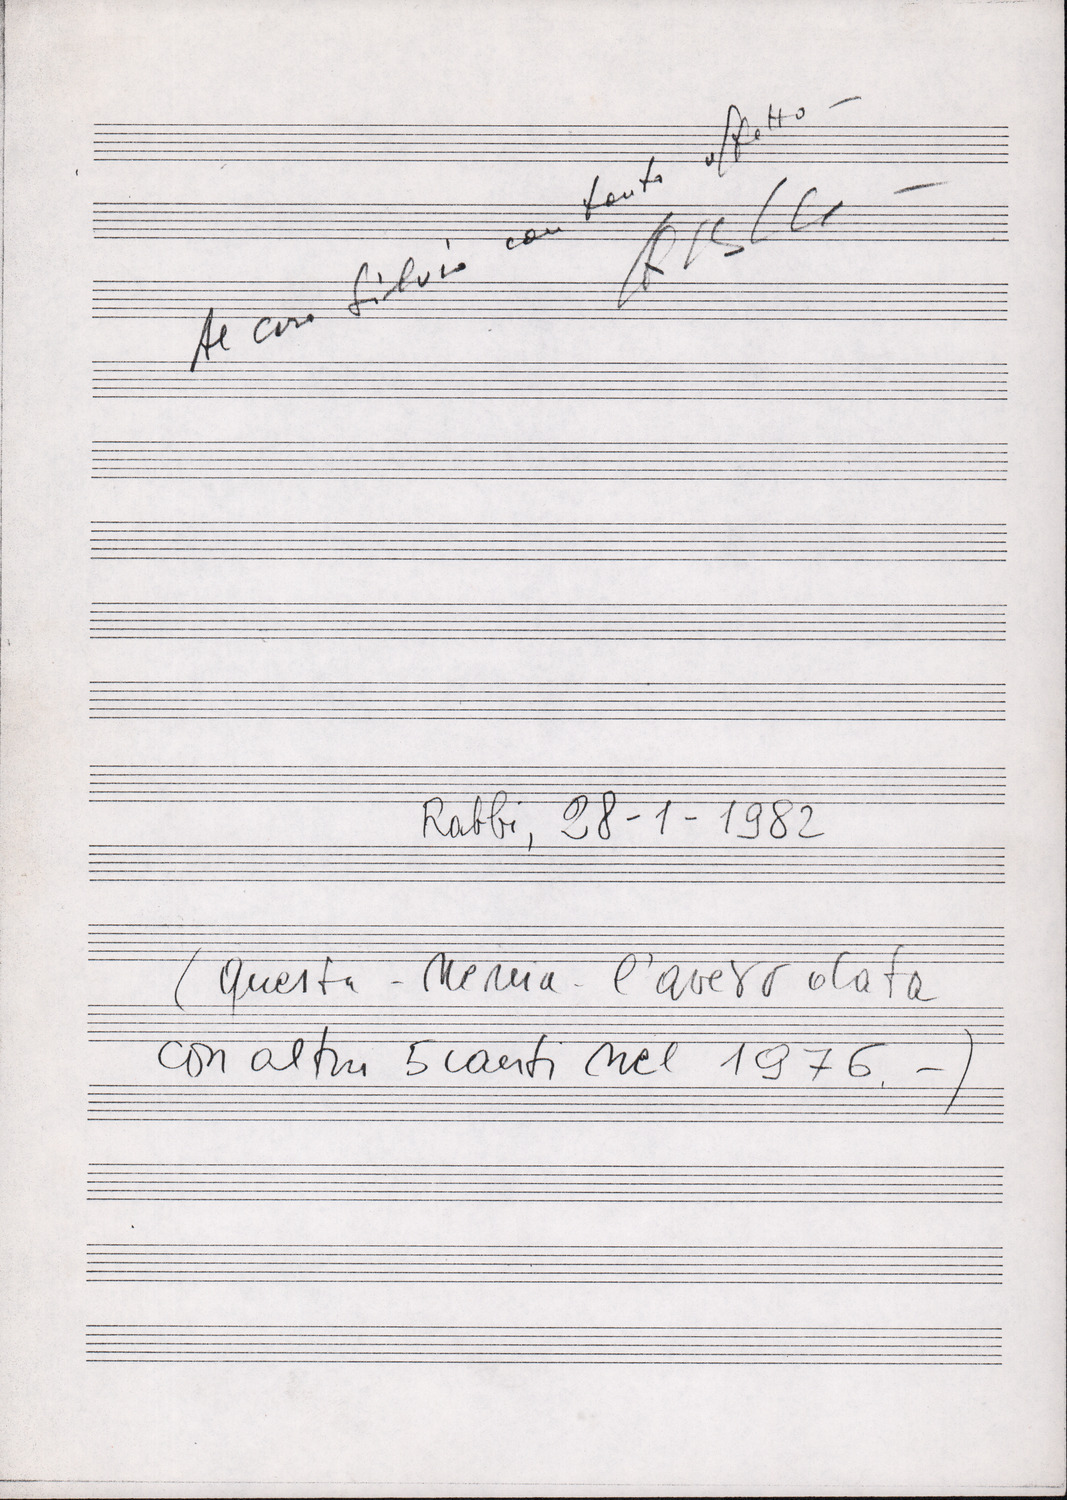 Al caro Silvio con tanto affetto -
Rabbi, 28-1-1982
(questa - Nenia - l'avevo data
con altri 5 canti nel 1976. -)